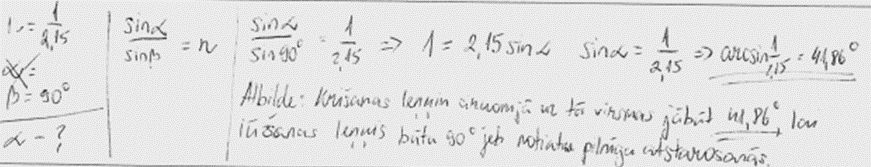 n = 1/2,15
α =
β = 90°
α - ?
sinα/sinβ = n
sinα/sin90° = 1/2,15 => 1 = 2,15 sinα sinα = 1/2,15 => arcsin 1/2,15 = 41,86°
Atbilde: Krišanas leņķim uz tā virsmas jābūt 41,86°, lai
lūšanas leņķis būtu 90° jeb notiktu pilnīga atstarošanās.